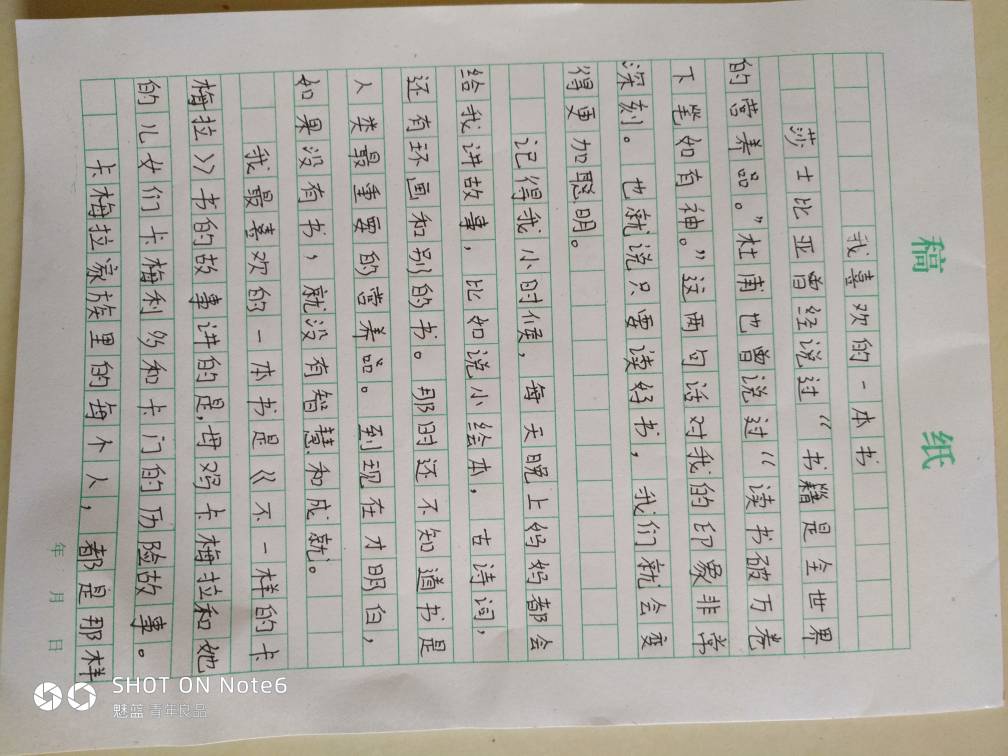 稿 纸
我喜欢的一本书
莎士比亚曾经说过“书籍是全世界
的营养品。”杜甫也曾说过“读书破万卷
下笔如有神。”这两句话对我的印象非常
深刻。也就说只要读好书，我们就会变
得更加聪明。
记得我小时候，每天晚上妈妈都会
给我讲故事，比如说小绘本，古诗词，
还有环画和别的书。那时还不知道书是
人类最重要的营养品。到现在才明白，
如果没有书，就没有智慧和成就。
我最喜欢的一本书是《不一样的卡
梅拉》书的故事讲的是，母鸡卡梅拉和她
的儿女们卡梅利多和卡门的历险故事。
卡梅拉家族里的每个人，都是那样
年 月 日
SHOT ON Note6
魅蓝 青年良品